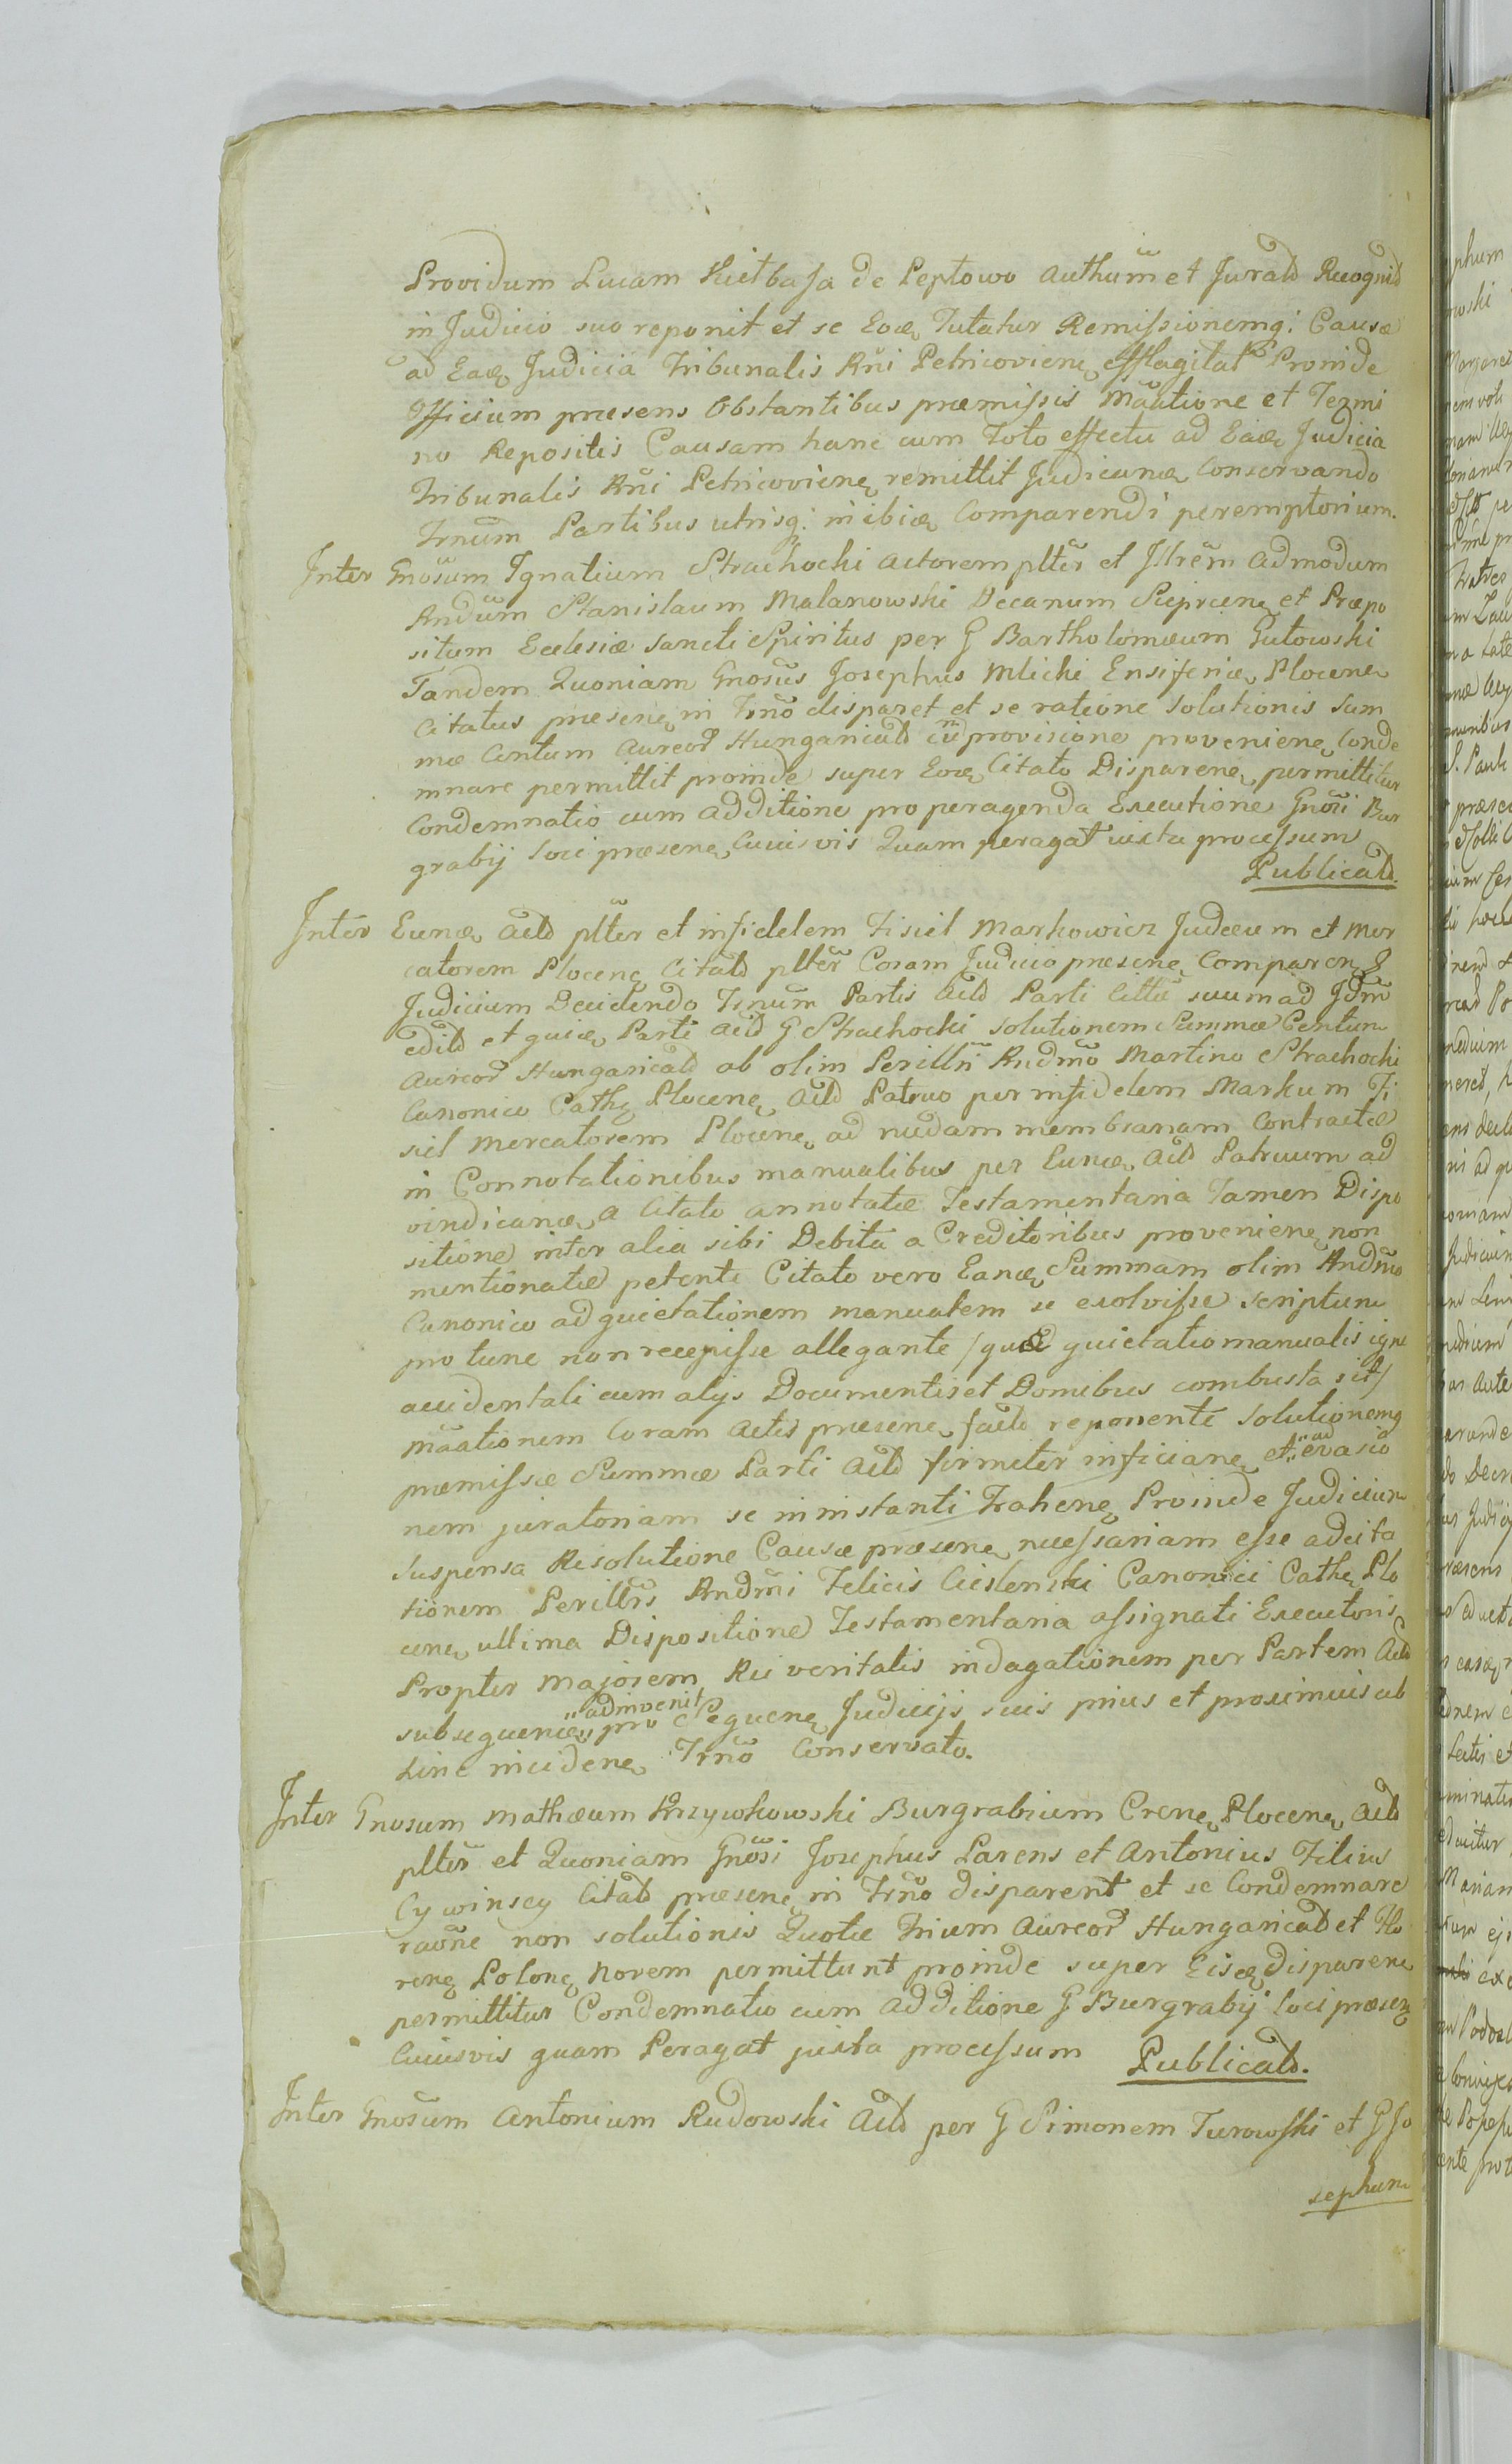 Providum Lucam Kietbasa de Peptowo authum̃ et Jurato Recognito
in Judicio suo reponit et se Eoq̨ Tutatur Remissionemq: Causæ
ad Eaq̨ Judicia Tribunalis Rñi Petricovienę efflagitat Proinde
Officium præsens Obstantibus præmissis Mãatione et Termi
no Repositis Causam hanc cum Toto effectu ad Eaq̨ Judicia
Tribunalis Rñi Petricovienę remittit Judicanq̨ Conservando
Trñum Partibus utrisq: inibiq̨ Comparendi peremptorium.
Inter Gnõsum Ignatium Strachocki actorem pltẽr et Jllrẽm admodum
Rndũm Stanislaum Malanowski Decanum Sieprcenę et Præpo
situm Ecclesiæ Sancti Spiritus per G Bartholomæum Gutowski
Tandem Quoniam Gnosũs Josephus Mlicki Ensiferiq̨ Plocenę
Citatus præsenę in Trñõ disparet et se ratione Solutionis Sum
mæ Centum Aureor Hungaricalo cũ provisione provenienę Conde
mnare permittit proinde super Eoq̨ Citato Disparenę permittitur
Condemnatio cum additione pro peragenda Executione Gnõsi Bur
grabij loci præsenę cuiusvis Quam peragat iuxta processum
Publicato.
Inter Eunq̨ Acto pltẽr et infidelem Fisiel Markowicz Judæum et Mer
catorem Plocenę Citato pltẽr Coram Judicio præsenę Comparen
Judicium Decidendo Trñum Partis Acto Parti Cittũ suum ad Jdm̃
edito et quiq̨ Parti Acto G Strachocki solutionem Summæ Centum
Aureor Hungaricalo ab olim Perillri Rndmõ Martino Strachocki
Canonico Cathę Plocenę Acto Patruo per infidelem Markum Fi
siel Mercatorem Plocenę ad nudam membranam Contractæ
in Connotationibus manualibus per Eunq̨ Acto Patruum ad
vindicanq̨ a Citato annotatæ Testamentaria Tamen Dispo
sitione inter alia sibi Debita a Creditoribus provenienę non
mentionatæ petenti Citato vero Eanq̨ Summam olim Rndmõ
Canonico ad quietationem manualem se exolvisse scriptum
pro tunc non recepisse allegante / quod quietatio manualis igne
accidentali cum alijs Documentis et Domibus combusta sit /
mãationem Coram Actis præsenę facto reponente Solutionemq
præmissæ Summæ Parti Acto firmiter inficianę et ad evasio
nem juratoriam se in instanti Trahenę Proinde Judicium
Suspensa Resolutione Causæ præsenę necessariam esse adcita
tionem Perillr̃is Rndm̃i Felicis Cieslenski Canonici Cathę Plo
cenę ultima Dispositione Testamentaria assignati Executoris
Propter majorem Rei veritatis indagationem per Partem Acto
subsequenq̨ adinvenit pro Sequenę Judicijs suis prius et proximius ab
hinc incidenę Trñõ Conservato.
Inter Gnosum Mathæum Krzywkowski Burgrabium Crenę Plocenę Acto
pltẽr et Quoniam Gnõsi Josephus Parens et Antonius Filius
Cywinscy Citato præsenę in Trñõ disparent et se Condemnare
raõne non solutionis Quotæ Trium Aureor Hungaricalo et Flo
renę Polonę Novem permittunt proinde super Eisq̨ disparenę
permittitur Condemnatio cum additione G Burgrabij loci præsenę
Cuiusvis quam Peragat juxta processum Publicato.
Inter Gnosũm Antonium Rudowski Acto per G Simonem Turowski et G Jo
sephum